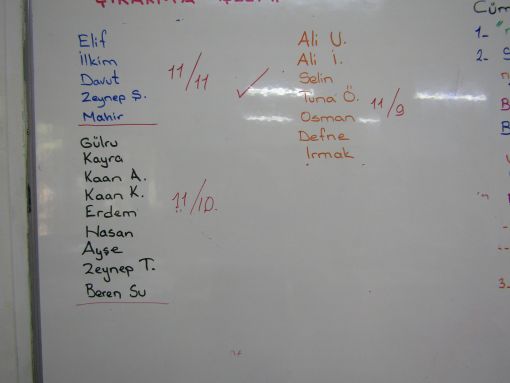 Elif
İlkim
Davut
Zeynep Ş.
Mahir
11/11
Gülru
Kayra
Kaan A.
Kaan K.
Erdem
Hasan
Ayşe
Zeynep T.
Beren Su
11/10.
Ali U.
Ali İ.
Selin
Tuna Ö.
Osman
Defne
Irmak
11/9
1-
2-
3-